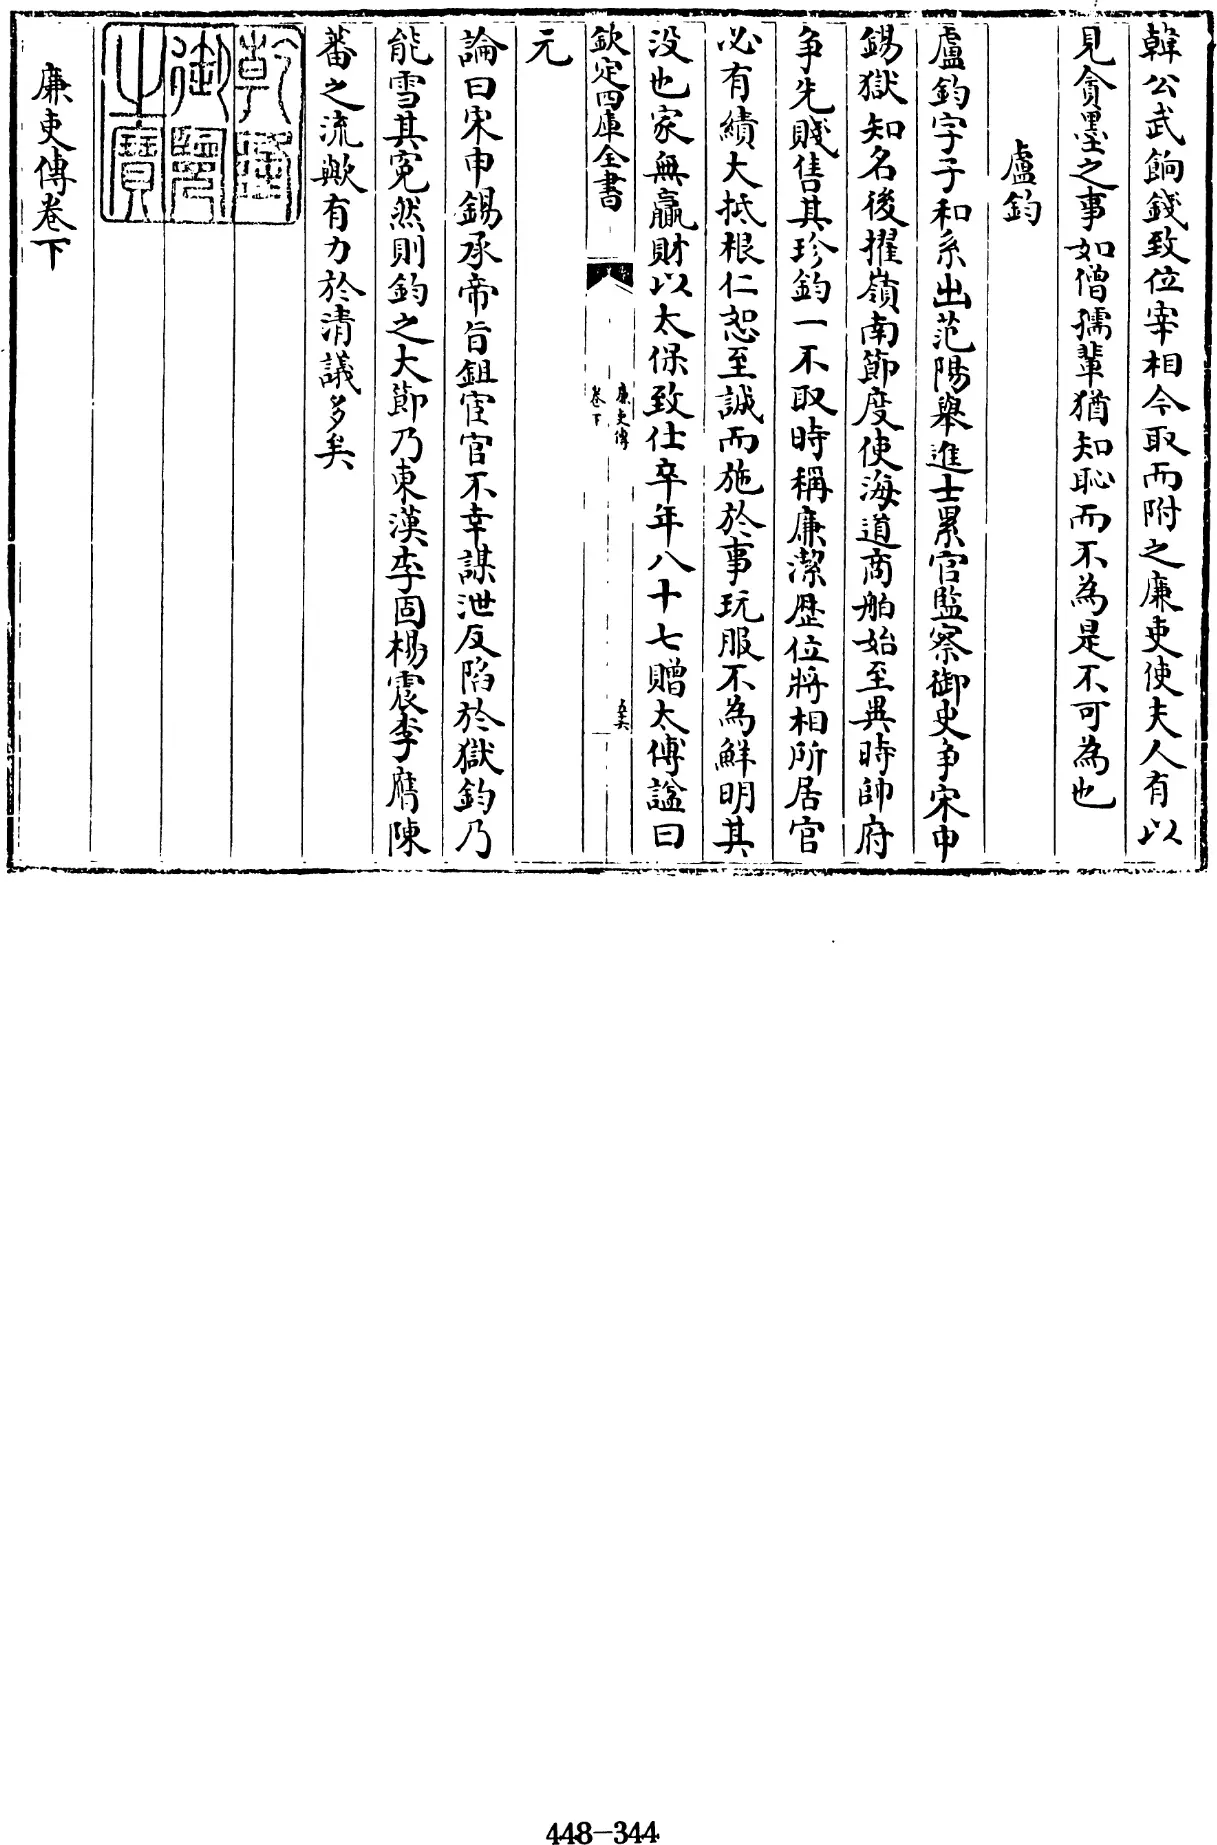 韓公武餉錢致位宰相今取而附之廉吏使夫人有以
見貪墨之事如僧孺輩猶知恥而不為是不可為也
盧鈞
盧鈞字子和系出范陽舉進士累官監察御史爭宋申
錫獄知名後擢嶺南節度使海道商舶始至異時帥府
爭先賤售其珍鈞一不取時稱廉潔歷位將相所居官
必有績大抵根仁恕至誠而施於事玩服不為鮮明其
没也家無贏財以太保致仕卒年八十七贈太傅諡曰
欽定四庫全書
廉吏傳
卷下
元
論曰宋申錫承帝旨鉏宦官不幸謀泄反陷於獄鈞乃
能雪其寃然則鈞之大節乃東漢李固楊震李膺陳
蕃之流歟有力於清議多矣
乾隆御覽之寶
廉吏傳卷下
448-344